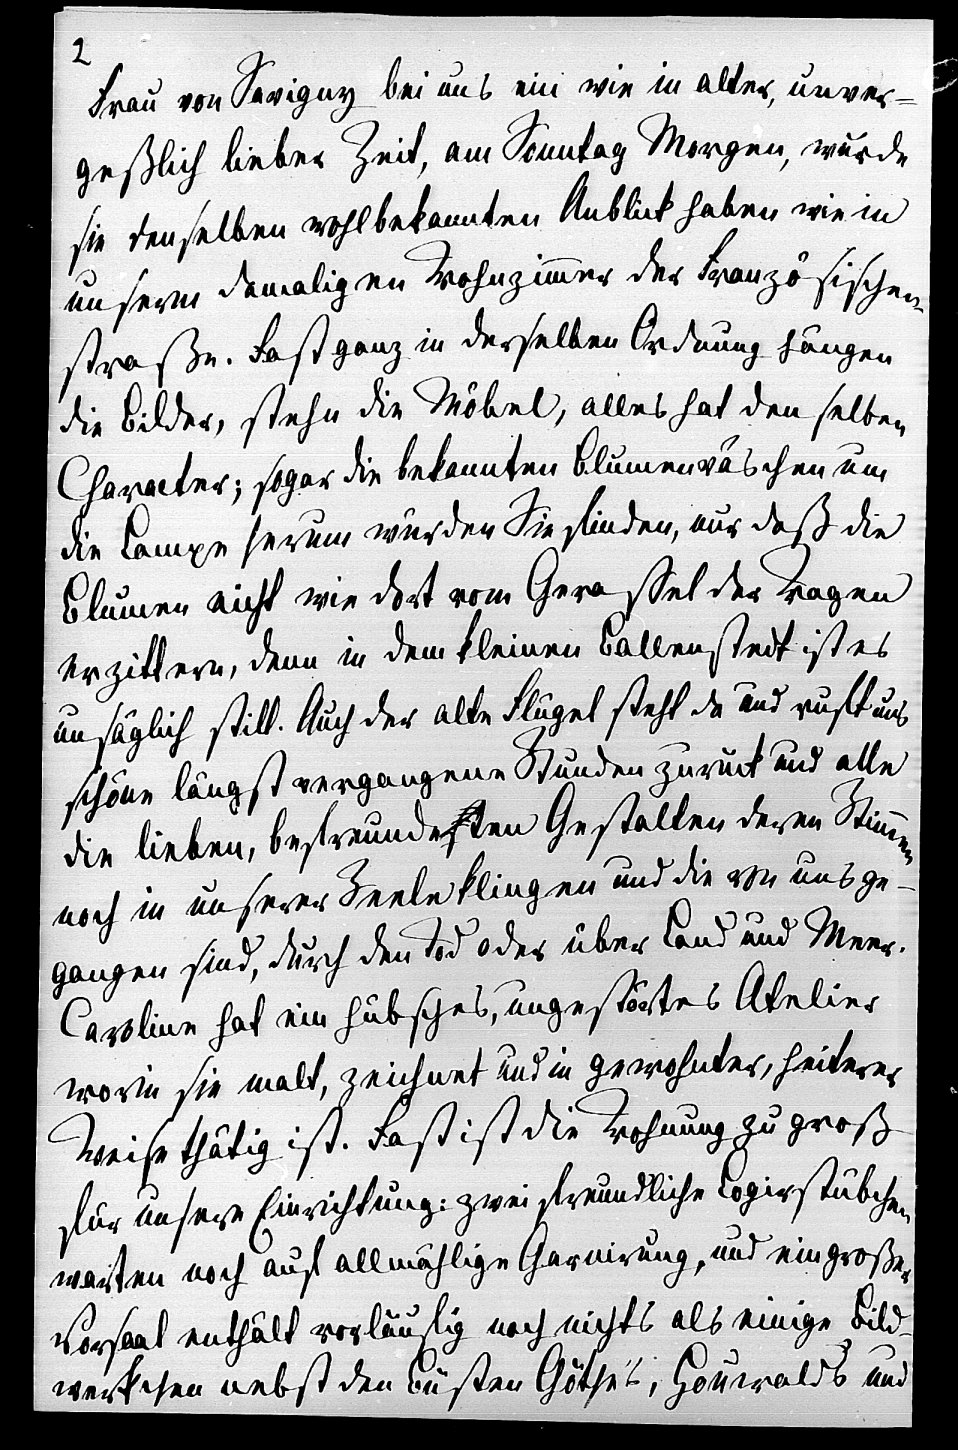 2
Frau von Savigny bei uns ein wie in alter, unver=
geßlich lieber Zeit, am Sonntag Morgen, würde
sie denselben wohlbekannten Anblick haben wie in
unserm damaligen Wohnzim̅er der Französischen-
straße. Fast ganz in derselben Ordnung hängen
die Bilder, stehn die Möbel, alles hat denselben
Character; sogar die bekannten Blumenväschen um
die Lampe herum würden Sie finden, nur daß die
Blumen nicht wie dort vom Gerassel der Wagen
erzittern, denn in dem kleinen Ballenstedt ist es
unsäglich still. Auch der alte Flügel steht da und ruft uns
schöne längst vergangene Stunden zurück und alle
die lieben, befreundeten Gestalten deren Stim̅en
noch in unserer Seele klingen und die von uns ge-
gangen sind, durch den Tod oder über Land und Meer.
Caroline hat ein hübsches, ungestörtes Atelier
worin sie malt, zeichnet und in gewohnter, heiterer
Weise thätig ist. Fast ist die Wohnung zu groß
für unsere Einrichtung: zwei freundliche Logirstübchen
warten noch auf allmählige Garnirung, und ein großer
Vorsaal enthält vorläufig noch nichts als einige Bild-
werkchen nebst den Büsten Göthe's, Houwald's und